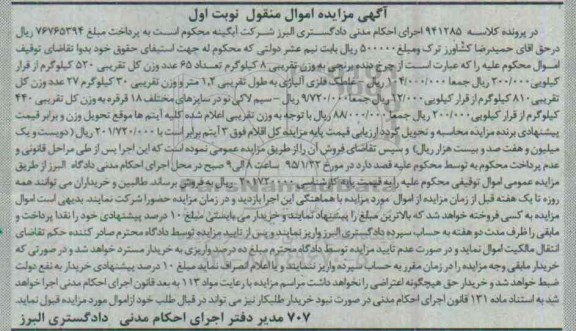 آگهی مزایده اموال منقول نوبت اول
در پرونده کلاسه ۹۴۱۲۸۵ اجرای احکام مدنی دادگستری البرز شرکت آبگینه محکوم است به پرداخت مبلغ ۷۶۷۶۵۳۹۴ ریال
درحق اقای حمیدرضا کشاورز ترک ومبلغ ۵۰۰۰۰۰ ریال بابت نیم عشر دولتی که محکوم له جهت استیفای حقوق خود بدوا تقاضای توقیف
اموال محکوم علیه را که عبارت است از چرخ دنده برنجی به وزن تقریبی ۸ کیلوگرم تعداد ۶۵ عدد وزن کل تقریبی ۵۲۰ کیلوگرم از قرار
کیلویی ۲۰۰/۰۰۰ ریال جمعا ۱۰۴/۰۰۰/۰۰۰ ریال - غلطک فلزی آلیاژی به طول تقریبی ۱,۲ متر و وزن تقریبی ۳۰ کیلوگرم ۲۷ عدد وزن کل
تقریبی ۸۱۰ کیلوگرم از قرار کیلویی ۱۲/۰۰۰ ریال جمعا ۹/۷۲۰/۰۰۰ ریال - سیم لاکی نو در سایزهای مختلف ۱۸ قرقره به وزن کل تقریبی ۴۴۰
کیلوگرم از قرار کیلویی ۲۰۰/۰۰۰ ریال جمعا ۸۸/۰۰۰/۰۰۰ ریال با توجه به وزن تقریبی اعلام شده کلیه آیتم ها موقع تحویل وزن و برابر قیمت
پیشنهادی برنده مزایده محاسبه و تحویل گردد ارزیابی قیمت پایه مزایده کل اقلام فوق ۳ آیتم برابر است با ۲۰۱/۷۲۰/۰۰۰ ریال (دویست و یک
میلیون و هفت صد و بیست هزار ریال) و سپس تقاضای فروش آن را از طریق مزایده عمومی نموده است که این اجرا پس از طی مراحل قانونی و
عدم پرداخت محکوم به توسط محکوم علیه قصد دارد در مورخ ۹۵/۱/۳۲ ساعت ۸ الی ۹ صبح در محل اجرای احکام مدنی دادگاه البرز از طریق
مزایده عمومی اموال توقیفی محکوم علیه را به قیمت پایه کارشناسی ۲۰۱/۷۲۰/۰۰۰ ریال به فروش برساند طالبین و خریداران می توانند همه
روزه تا یک هفته قبل از زمان مزایده از اموال مورد مزایده با هماهنگی این اجرا بازدید و در زمان مزایده حضورا شرکت نمایند. بدیهی است اموال
مزایده به کسی فروخته خواهد شد که بالاترین مبلغ را پیشنهاد نمایند و خریدار می بایستی مبلغ ۱۰ درصد پیشنهادی خود را نقدا پرداخت و
مابقی را ظرف مدت دو هفته به حساب سپرده دادگستری البرز واریز نمایند و پس از تایید مزایده توسط دادگاه محترم صادر کننده حکم تقاضای
انتقال مالکیت اموال نماید و در صورت عدم تایید مزایده توسط دادگاه محترم مبلغ ده درصد واریزی به خریدار مسترد خواهد شد و در صورتی که
خریدار مابقی وجه مزایده را در زمان مقرر به حساب سپرده واریز ننمایند و یا اعلام انصراف نماید مبلغ ۱۰ درصد پیشنهادی خریدار به نفع دولت
ضبط خواهد شد و خریدار حق هیچگونه اعتراضی را نخواهد داشت مراسم مزایده با رعایت مواد ۱۱۳ به بعد قانون اجرای احکام مدنی اجرا خواهد
شد به استناد ماده ۱۳۱ قانون اجرای احکام مدنی در صورت نبود خریدار طلبکار نیز می تواند در قبال طلب خود ازاموال مورد مزایده قبول نماید.
۷۰۷ مدیر دفتر اجرای احکام مدنی دادگستری البرز